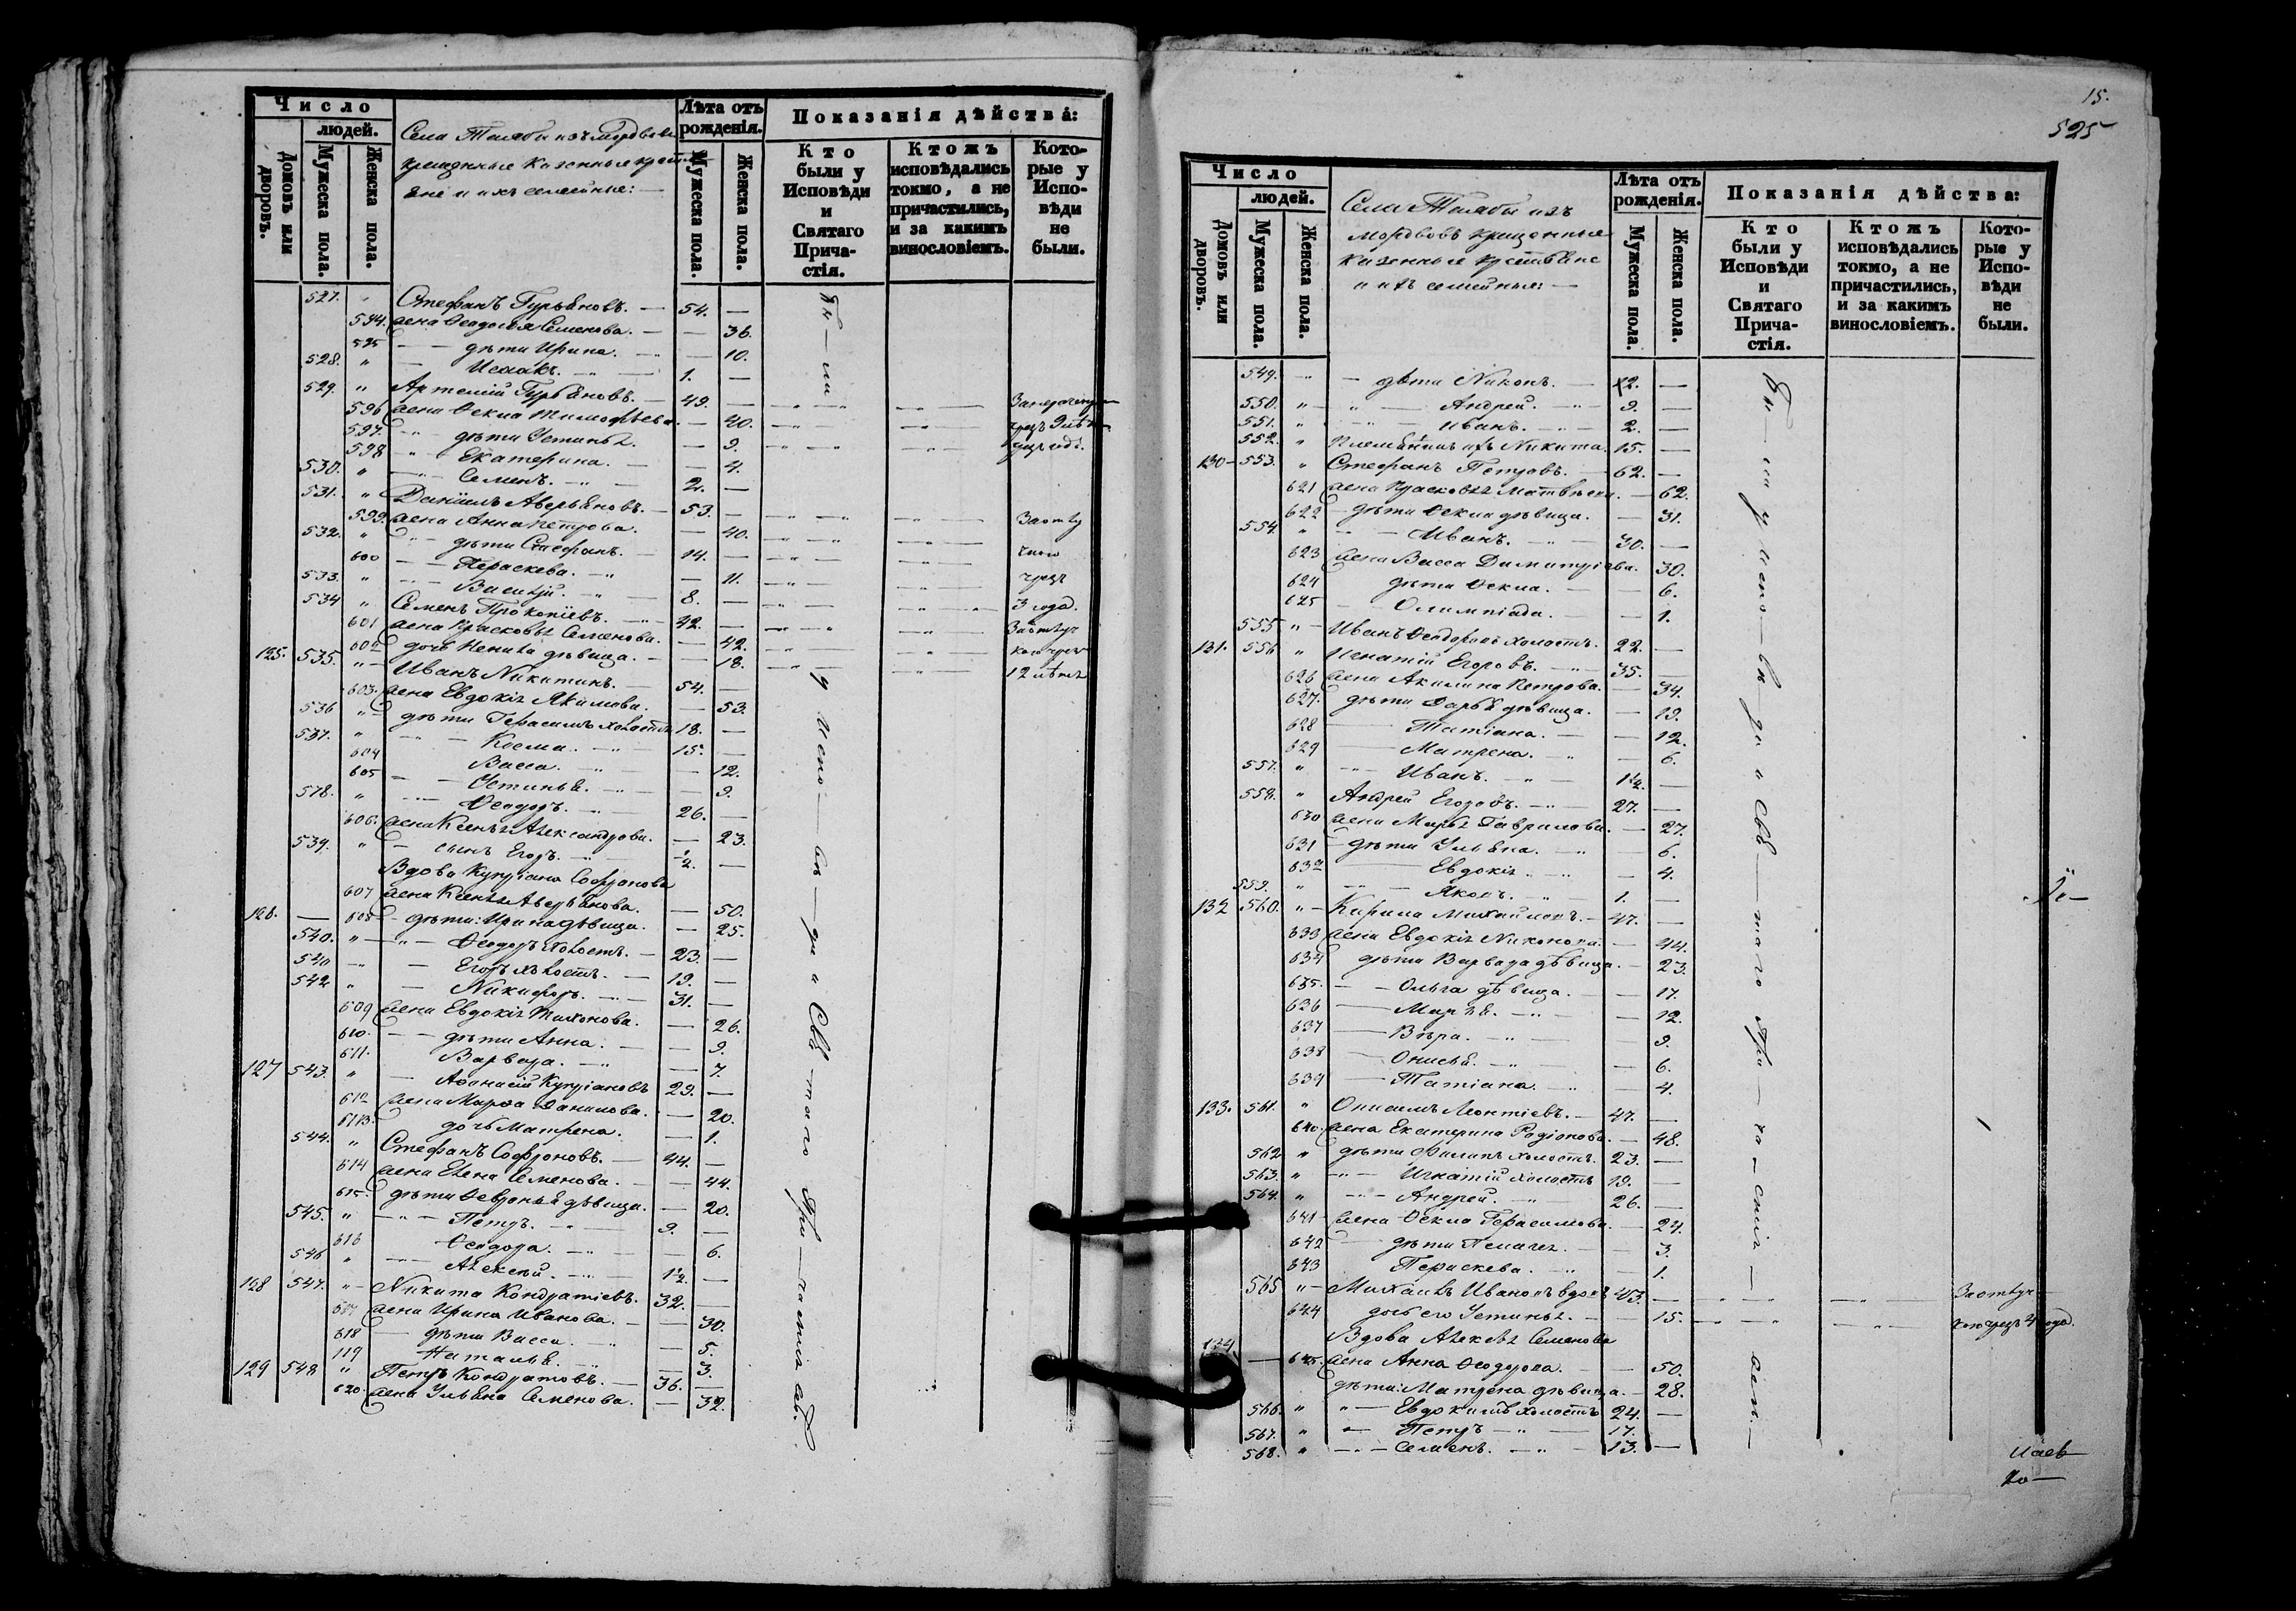 Число
людей.
Домовъ или дворовъ.
Мужеска пола.
Женска пола.
Села
крещенные казенные
и ихъ семейные:
Лѣта отъ рожденія.
Мужеска пола.
Женска пола.
Показанія дѣйства:
Кто были у Исповѣди и Святаго Прича-стія.
Ктожъ исповѣдались токмо, а не причастились, и за какимъ винословіемъ.
Кото-рые у Испо-вѣди не были.
527. " Стефанъ Гурьяновъ. — 54. —
594. жена Ѳеодосія Семенова. — — 36.
595 — — дѣти Ирина. — — 10.
528. " — Исаакъ. — " — 1. —
529. " Артемій Гурьяновъ. — 49. —
596 жена Ѳекла Тимофѣева. — 40.
597. — " дѣти Устинья. — 9.
598 — " Екатерина. — — 4.
530. " — Семенъ. — " — 2. —
531. " Даніилъ Аверьяновъ. — 53. —
599. жена Анна Петрова. — 40.
532. " — дѣти Стефанъ. — 14. —
600 — — Параскева. — " — 11.
533. " — Василій. — " — 8. —
534 " Семенъ Прокопіевъ. — 42. —
601 жена Прасковья Семенова. — 42.
602 дочь Ненила дѣвица. — — 18.
125. 535. " — Иванъ Никитинъ. — 54. —
603. жена Евдокія Якимова. — 53.
536 " — дѣти Герасимъ холостъ 18. —
537. " — Косма. — " 15. —
604 Васса. — " — 12.
605 — — Устинья. — " — 9.
578. " — Ѳеодоръ. — 26. —
606. жена Ксенья Александрова. — 23.
539. " — сынъ Егоръ. — " ½. —
Вдова Купріана Софронова
607 жена Ксенья Аверьянова. — 50.
126. — 608 — дѣти: Ирина дѣвица. — 25.
540. " — Ѳеодоръ холостъ. — 23. —
540 — " — Егоръ холостъ. — 19. —
542 " — Никифоръ. — " — 31. —
609 жена Евдокія Тихонова. — 26.
610. — — дѣти Анна. — — 9.
611. Варвара. — " — 7.
127 543. " — Аѳонасій Купріановъ 29. —
612 жена Марѳа Данилова. — 20.
613. дочь Матрена. — 1.
544. " Стефанъ Софроновъ. — 44. —
614 жена Елена Семенова. — — 44.
615. дѣти Февронья дѣвица. — 20.
545. " — " — Петръ. — " 9. —
616 Ѳеодора. — " — 6.
546 " — Алексѣй. — " 1½. —
128 547. " — Никита Кондратіевъ. 32. —
617 жена Ирина Иванова. — — 30.
618 — дѣти Васса. — — 5.
119 Наталья. — " — 3.
129 548 " Петръ Кондратовъ. — 36. —
620. жена Ульяна Семенова. — 32.
Бы — ли у испо — вѣ — ди и Свя — таго При — частія
3 года.
12 лѣтъ
15.
525
Число
людей.
Домовъ или дворовъ.
Мужеска пола.
Женска пола.
Села
крещенные
казенные крестьяне
и ихъ семейные: —
Лѣта отъ рожденія.
Мужеска пола.
Женска пола.
Показанія дѣйства:
Кто были у Исповѣди и Святаго Прича-стія.
Ктожъ исповѣдались токмо, а не причастились, и за какимъ винословіемъ.
Кото-рые у Испо-вѣди не были.
549. — " — дѣти Никонъ. — 12. —
550. " — " — Андрей. — " — 9. —
551. " — " — Иванъ. — " — 2. —
552. " Племянникъ ихъ Никита. 15. —
130 — 553. " Стефанъ Петровъ. — 62. —
621 жена Прасковья Матвѣева. — 62.
622 — дѣти Ѳекла дѣвица. — 31.
554 " — Иванъ. — " — 30. —
623 жена Васса Димитріева. 30.
624 дѣти Ѳекла. — — 6.
625 — Олимпіада. — — 1.
555 " — Иванъ Ѳеодоровъ холостъ. 22. —
131. 556 " Игнатій Егоровъ. — " 35. —
626 жена Акилина Петрова. — 34.
627. дѣти Дарья дѣвица. — 19.
628 — Татіана. — — 12.
629 — Матрена. — " — 6.
557. " — Иванъ. — " — 1½. —
558. " Андрей Егоровъ. — " — 27. —
630 жена Марья Гаврилова. — 27.
631 — дѣти Ульяна. — " — 6.
632 — Евдокія. — " — 4.
559. " — Яковъ. — " — 1. —
132 560. " — Кирила Михайловъ. — 47. —
633 жена Евдокія Никонова. — 44.
634 дѣти Варвара дѣвица. — 23.
635. — — Ольга дѣвица. — — 17.
636 — Марья. — " — — 12.
637 — Вѣра. — " — — 9.
638 — Онисья. — " — 6.
639 — Татіана. — " — 4.
133. 561. " Онисимъ Леонтіевъ. — 47. —
640. жена Екатерина Родіонова. — 48.
562 " дѣти Филипъ холостъ. 23. —
563. " — " — Игнатій холостъ 19. —
564. " — " — Андрей. — " — 26. —
641 — жена Ѳекла Герасимова. — 24.
642 — дѣти Пелагея. — — 3.
643 Параскева. — " — 1.
565 " — Михаилъ Ивановъ вдовъ 43. —
644 дочь его Устинья. — — 15.
Вдова Алексѣя Семенова
134. — 645. жена Анна Ѳеодорова. — — 50.
дѣти: Матрена дѣвица. — 28.
566. " " — Евдокимъ холостъ 24. —
567. " — Петръ — " — 17. —
568. " — " — Семенъ. — " — 13. —
Бы — ли у испо — вѣ — ди и Свя — таго При — ча — стія —